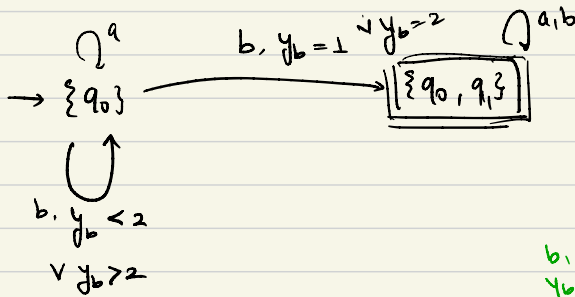 a
b, y_b = ⊥ ∨ y_b = 2
a, b
{q_0}
{q_0, q_1}
b, y_b < 2
∨ y_b > 2
b,
y_b